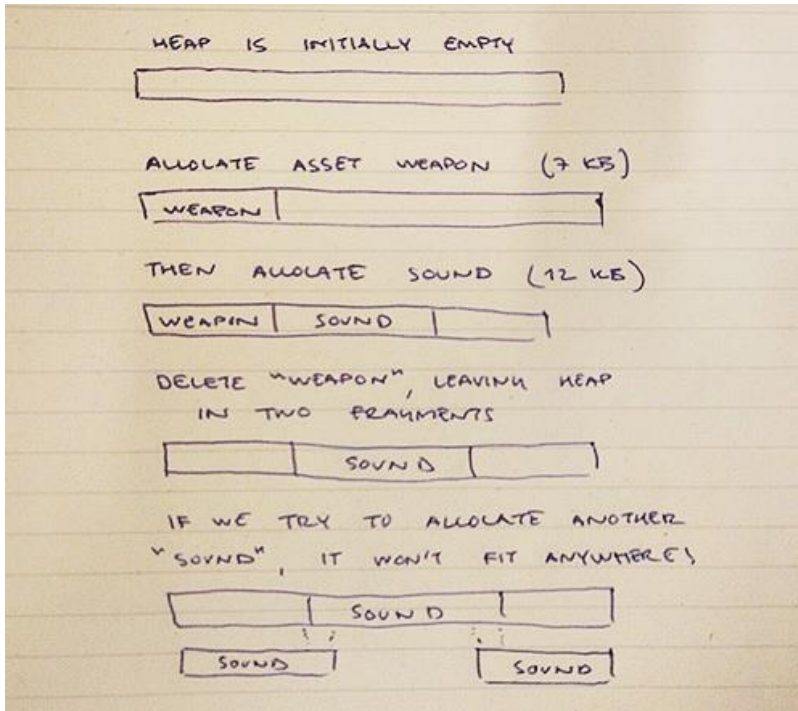 HEAP IS INITIALLY EMPTY
ALLOCATE ASSET WEAPON (7 KB)
WEAPON
THEN ALLOCATE SOUND (12 KB)
WEAPON SOUND
DELETE "WEAPON", LEAVING HEAP
IN TWO FRAGMENTS
SOUND
IF WE TRY TO ALLOCATE ANOTHER
"SOUND", IT WON'T FIT ANYWHERE!
SOUND
SOUND SOUND